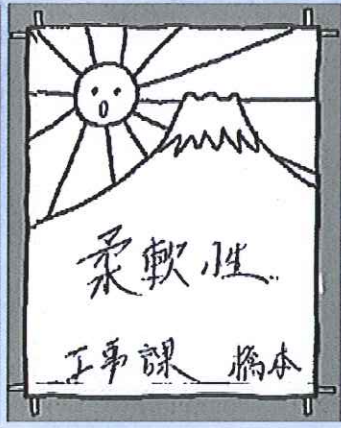 柔軟性
工事課 橋本